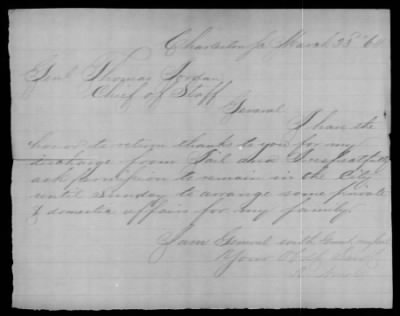 Charleston March 23d 64
Genl Thomas Jordan
Chief of Staff
General
I have the
honor to return thanks to you for my
discharge from Jail and I respectfully
ask permission to remain in the City
until Sunday to arrange some private
& domestic affairs for my family.
I am General with Great respect
Your Obdt Servt